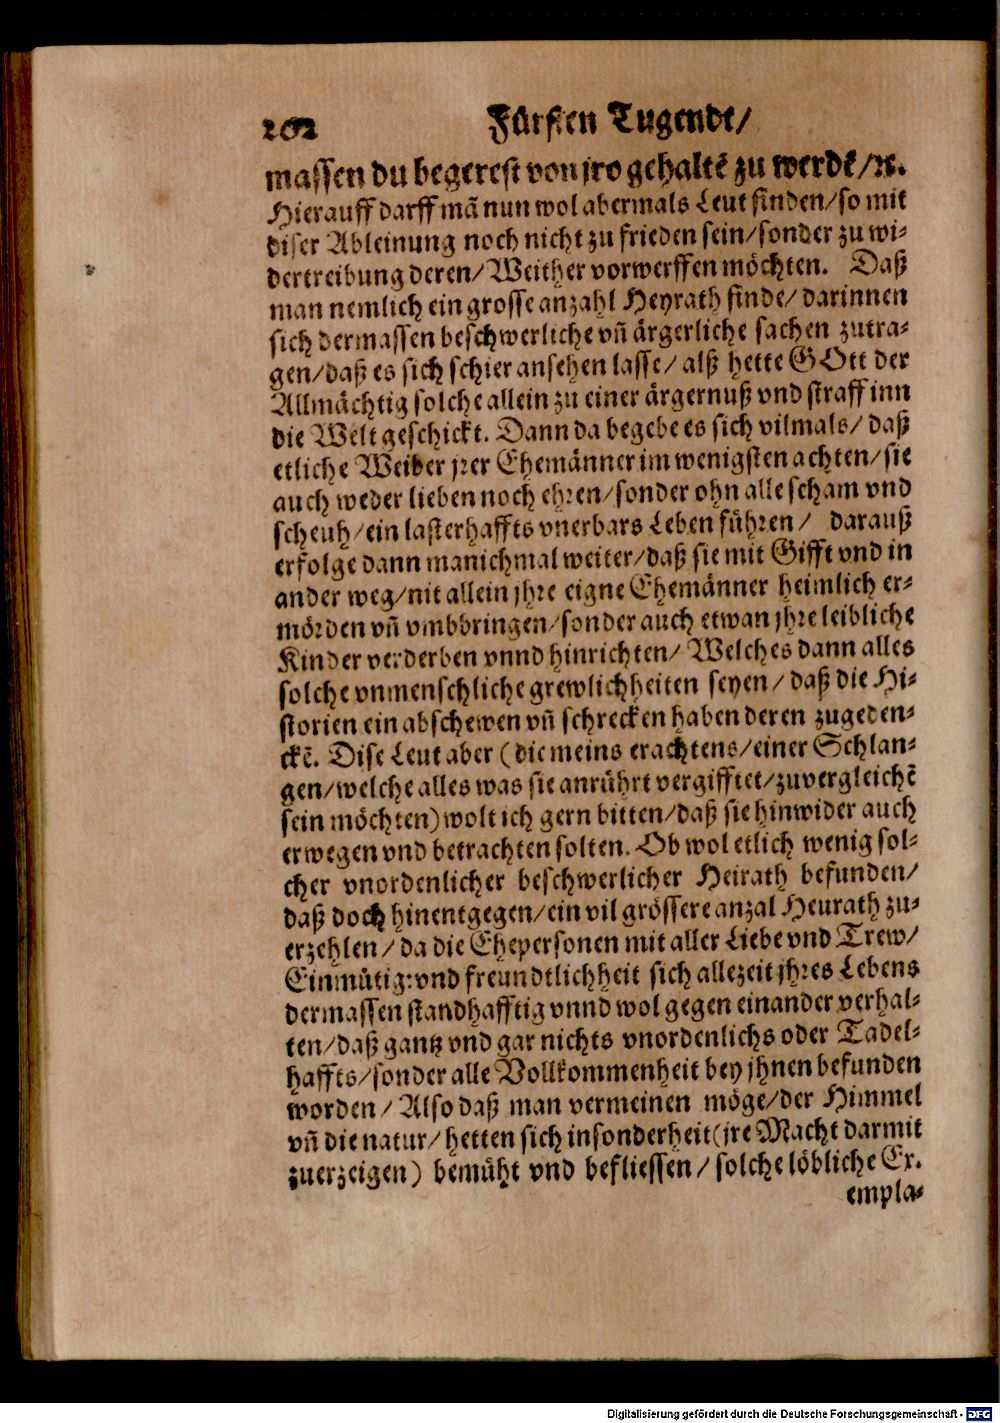 202 Fürsten Tugendt/
massen du begerest von jro gehaltẽ zu werdẽ/ ꝛc.
Hierauff darff mã nun wol abermals Leut finden/ so mit
diser Ableinung noch nicht zu frieden sein/ sonder zu wi⸗
dertreibung deren/ Weither vorwerffen möchten. Daß
man nemlich ein grosse anzahl Heyrath finde/ darinnen
sich dermassen beschwerliche vñ ärgerliche sachen zutra⸗
gen/ daß es sich schier ansehen lasse/ alß hette GOtt der
Allmächtig solche allein zu einer ärgernuß vnd straff inn
die Welt geschickt. Dann da begebe es sich vilmals/ daß
etliche Weiber jrer Ehemänner im wenigsten achten/ sie
auch weder lieben noch ehren/ sonder ohn alle scham vnd
scheuh/ ein lasterhaffts vnerbars Leben führen/ darauß
erfolge dann manichmal weiter/ daß sie mit Gifft vnd in
ander weg/ nit allein jhre eigne Ehemänner heimlich er⸗
mörden vñ vmbbringen/ sonder auch etwan jhre leibliche
Kinder verderben vnnd hinrichten/ Welches dann alles
solche vnmenschliche grewlichheiten seyen/ daß die Hi⸗
storien ein abschewen vñ schrecken haben deren zugeden⸗
ckẽ. Dise Leut aber (die meins erachtens/ einer Schlan⸗
gen/ welche alles was sie anrührt vergifftet/ zuvergleichẽ
sein möchten) wolt ich gern bitten/ daß sie hinwider auch
erwegen vnd betrachten solten. Ob wol etlich wenig sol⸗
cher vnordenlicher beschwerlicher Heirath befunden/
daß doch hinentgegen/ ein vil grössere anzal Heurath zu⸗
erzehlen/ da die Ehepersonen mit aller Liebe vnd Trew/
Einmütig: vnd freundtlichheit sich allezeit jhres Lebens
dermassen standhafftig vnnd wol gegen einander verhal⸗
ten/ daß gantz vnd gar nichts vnordenlichs oder Tadel⸗
haffts/ sonder alle Vollkommenheit bey jhnen befunden
worden/ Also daß man vermeinen möge/ der Himmel
vñ die natur/ hetten sich insonderheit (jre Macht darmit
zuerzeigen) bemüht vnd befliessen/ solche löbliche Ex.
empla⸗
Digitalisierung gefördert durch die Deutsche Forschungsgemeinschaft - DFG